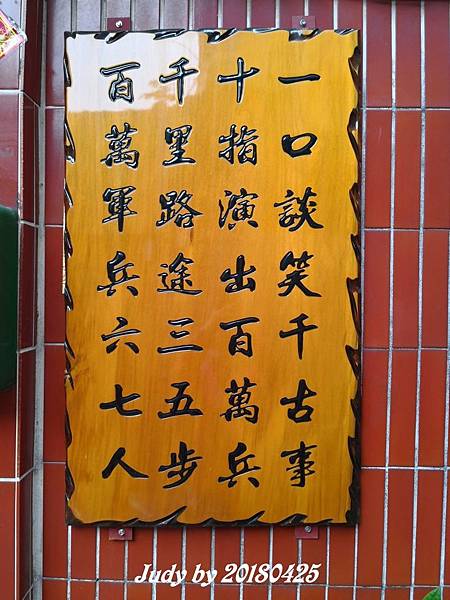 一口談笑千古事
十指演出百萬兵
千里路途三五步
百萬軍兵六七人
Judy by 20180425